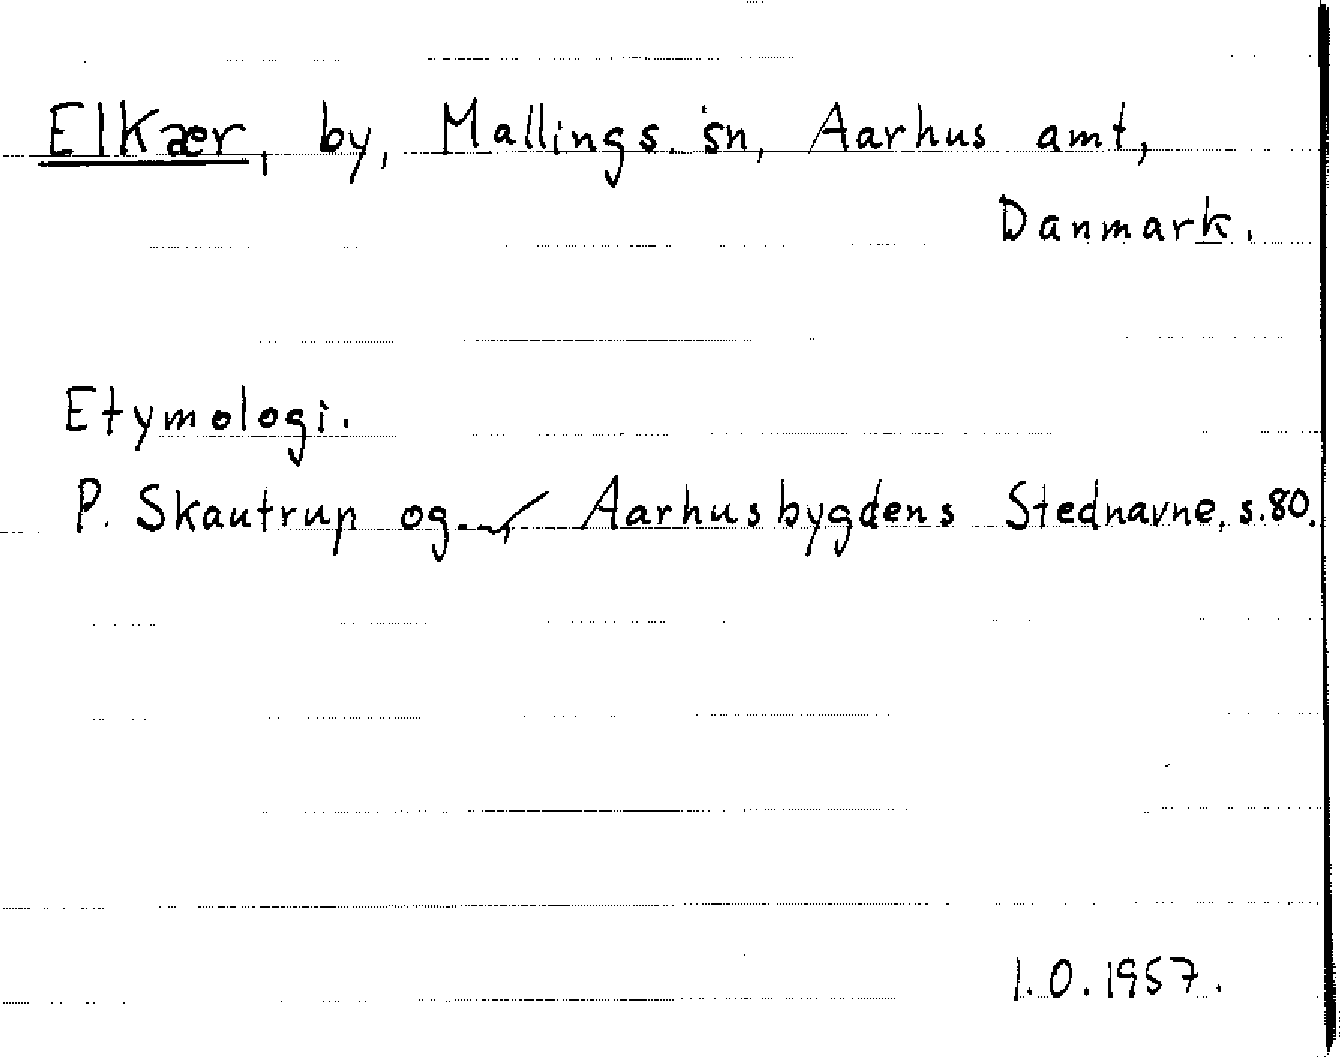 Elkær, by, Mallings sn, Aarhus amt,
Danmark.
Etymologi.
P. Skautrup og Aarhusbygdens Stednavne, s.80.
1.0.1957.